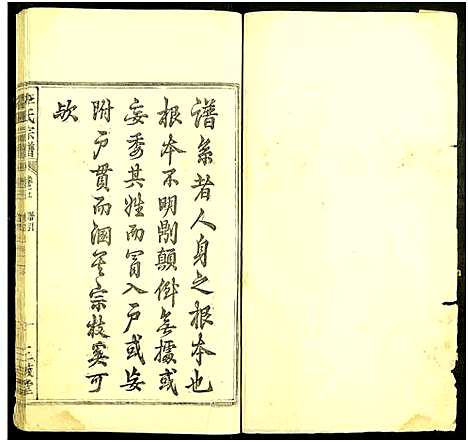 譜系者人身之根本也
根本不明則顛倒無據或
妄委其姓而冒入戶或妄
附戶貫而溷其宗枝奚可
欤
氏宗譜
卷之
譜引
三
堂